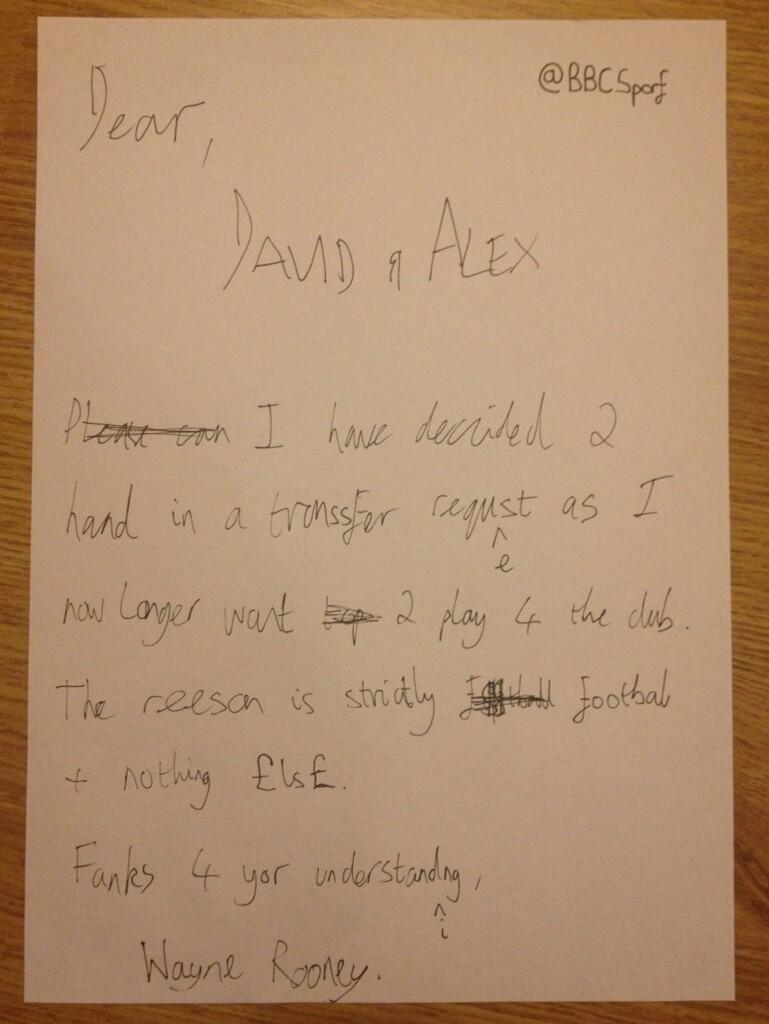 @BBCSporf
Dear,
DAVID & ALEX
Please can I have decided 2
hand in a transsfer requst as I
e
now longer want 2 play 4 the club.
The reeson is strictly football footbal
+ nothing £ls£.
Fanks 4 yor understandng,
i
Wayne Rooney.